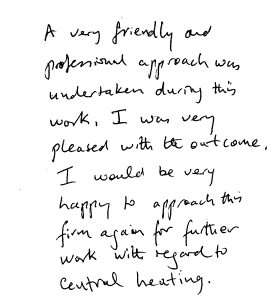 A very friendly and
professional approach was
undertaken during this
work. I was very
pleased with the outcome.
I would be very
happy to approach this
firm again for further
work with regard to
central heating.